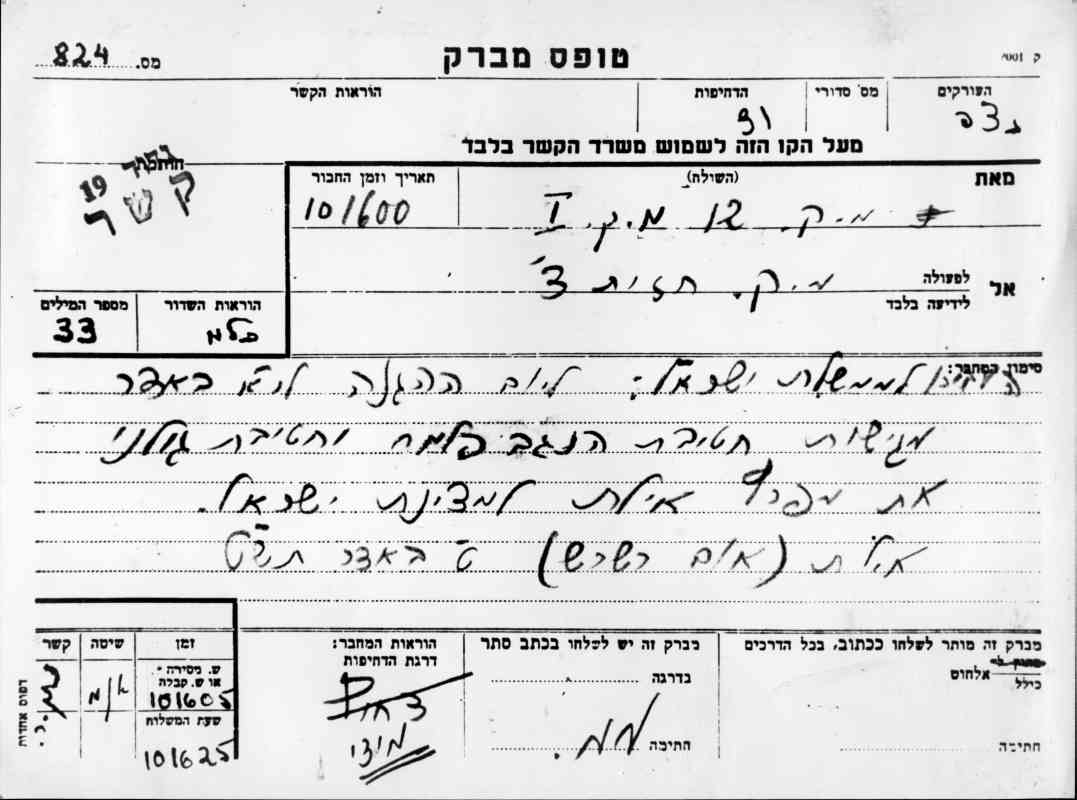 טופס מברק
מס. 824
העורקים
מס' סדורי
הדחיפות
הוראות הקשר
מעל הקו הזה לשמוש משרד הקשר בלבד
מאת
(השולח)
תאריך וזמן החבור
101600
קשר
19
מ.ק. 12 מ.ק. I
אל
לפעולה
לידיעה בלבד
מ.ק. חזית ד'
הוראות השדור
מספר המילים
33
סימון המחבר:
לממשלת ישראל: ליום ההגנה י"א באדר
מגישות חטיבת הנגב פלמח וחטיבת גולני
את מפרץ אילת למדינת ישראל.
אילת (אום רשרש) ט' באדר תש"ט
מברק זה מותר לשלחו ככתוב, בכל הדרכים
אלחוט
כולל
חתימה
מברק זה יש לשלחו בכתב סתר
בדרגה
חתימה
הוראות המחבר:
דרגת הדחיפות
מידי
זמן
שיטה
קשר
ש. מסירה
או ש. קבלה
101605
שעת המשלוח
101625
דפוס אחדות